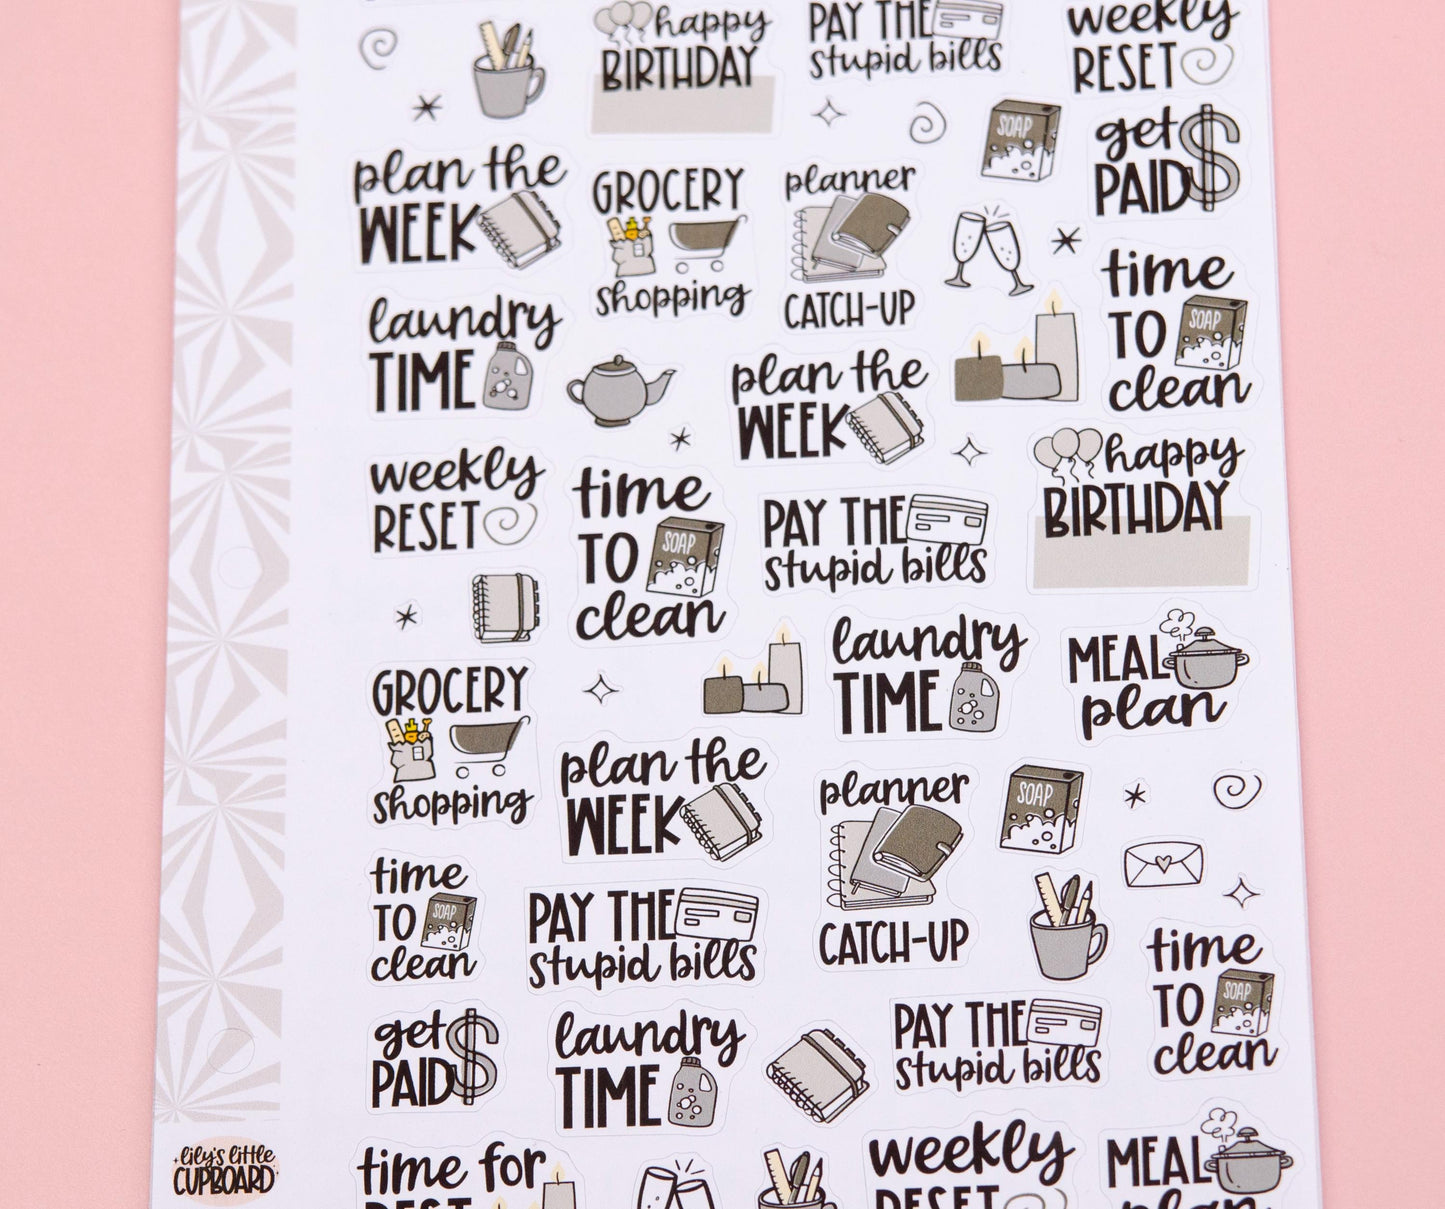 happy
BIRTHDAY
PAY THE
stupid bills
weekly
RESET
SOAP
get
PAID$
plan the
WEEK
GROCERY
shopping
planner
CATCH-UP
time
TO
SOAP
clean
laundry
TIME
plan the
WEEK
happy
BIRTHDAY
weekly
RESET
time
TO
SOAP
clean
PAY THE
stupid bills
laundry
TIME
MEAL
plan
GROCERY
shopping
plan the
WEEK
planner
CATCH-UP
SOAP
time
TO
SOAP
clean
PAY THE
stupid bills
time
TO
SOAP
clean
get
PAID$
laundry
TIME
PAY THE
stupid bills
time for
REST
weekly
RESET
MEAL
plan
lily's little
CUPBOARD